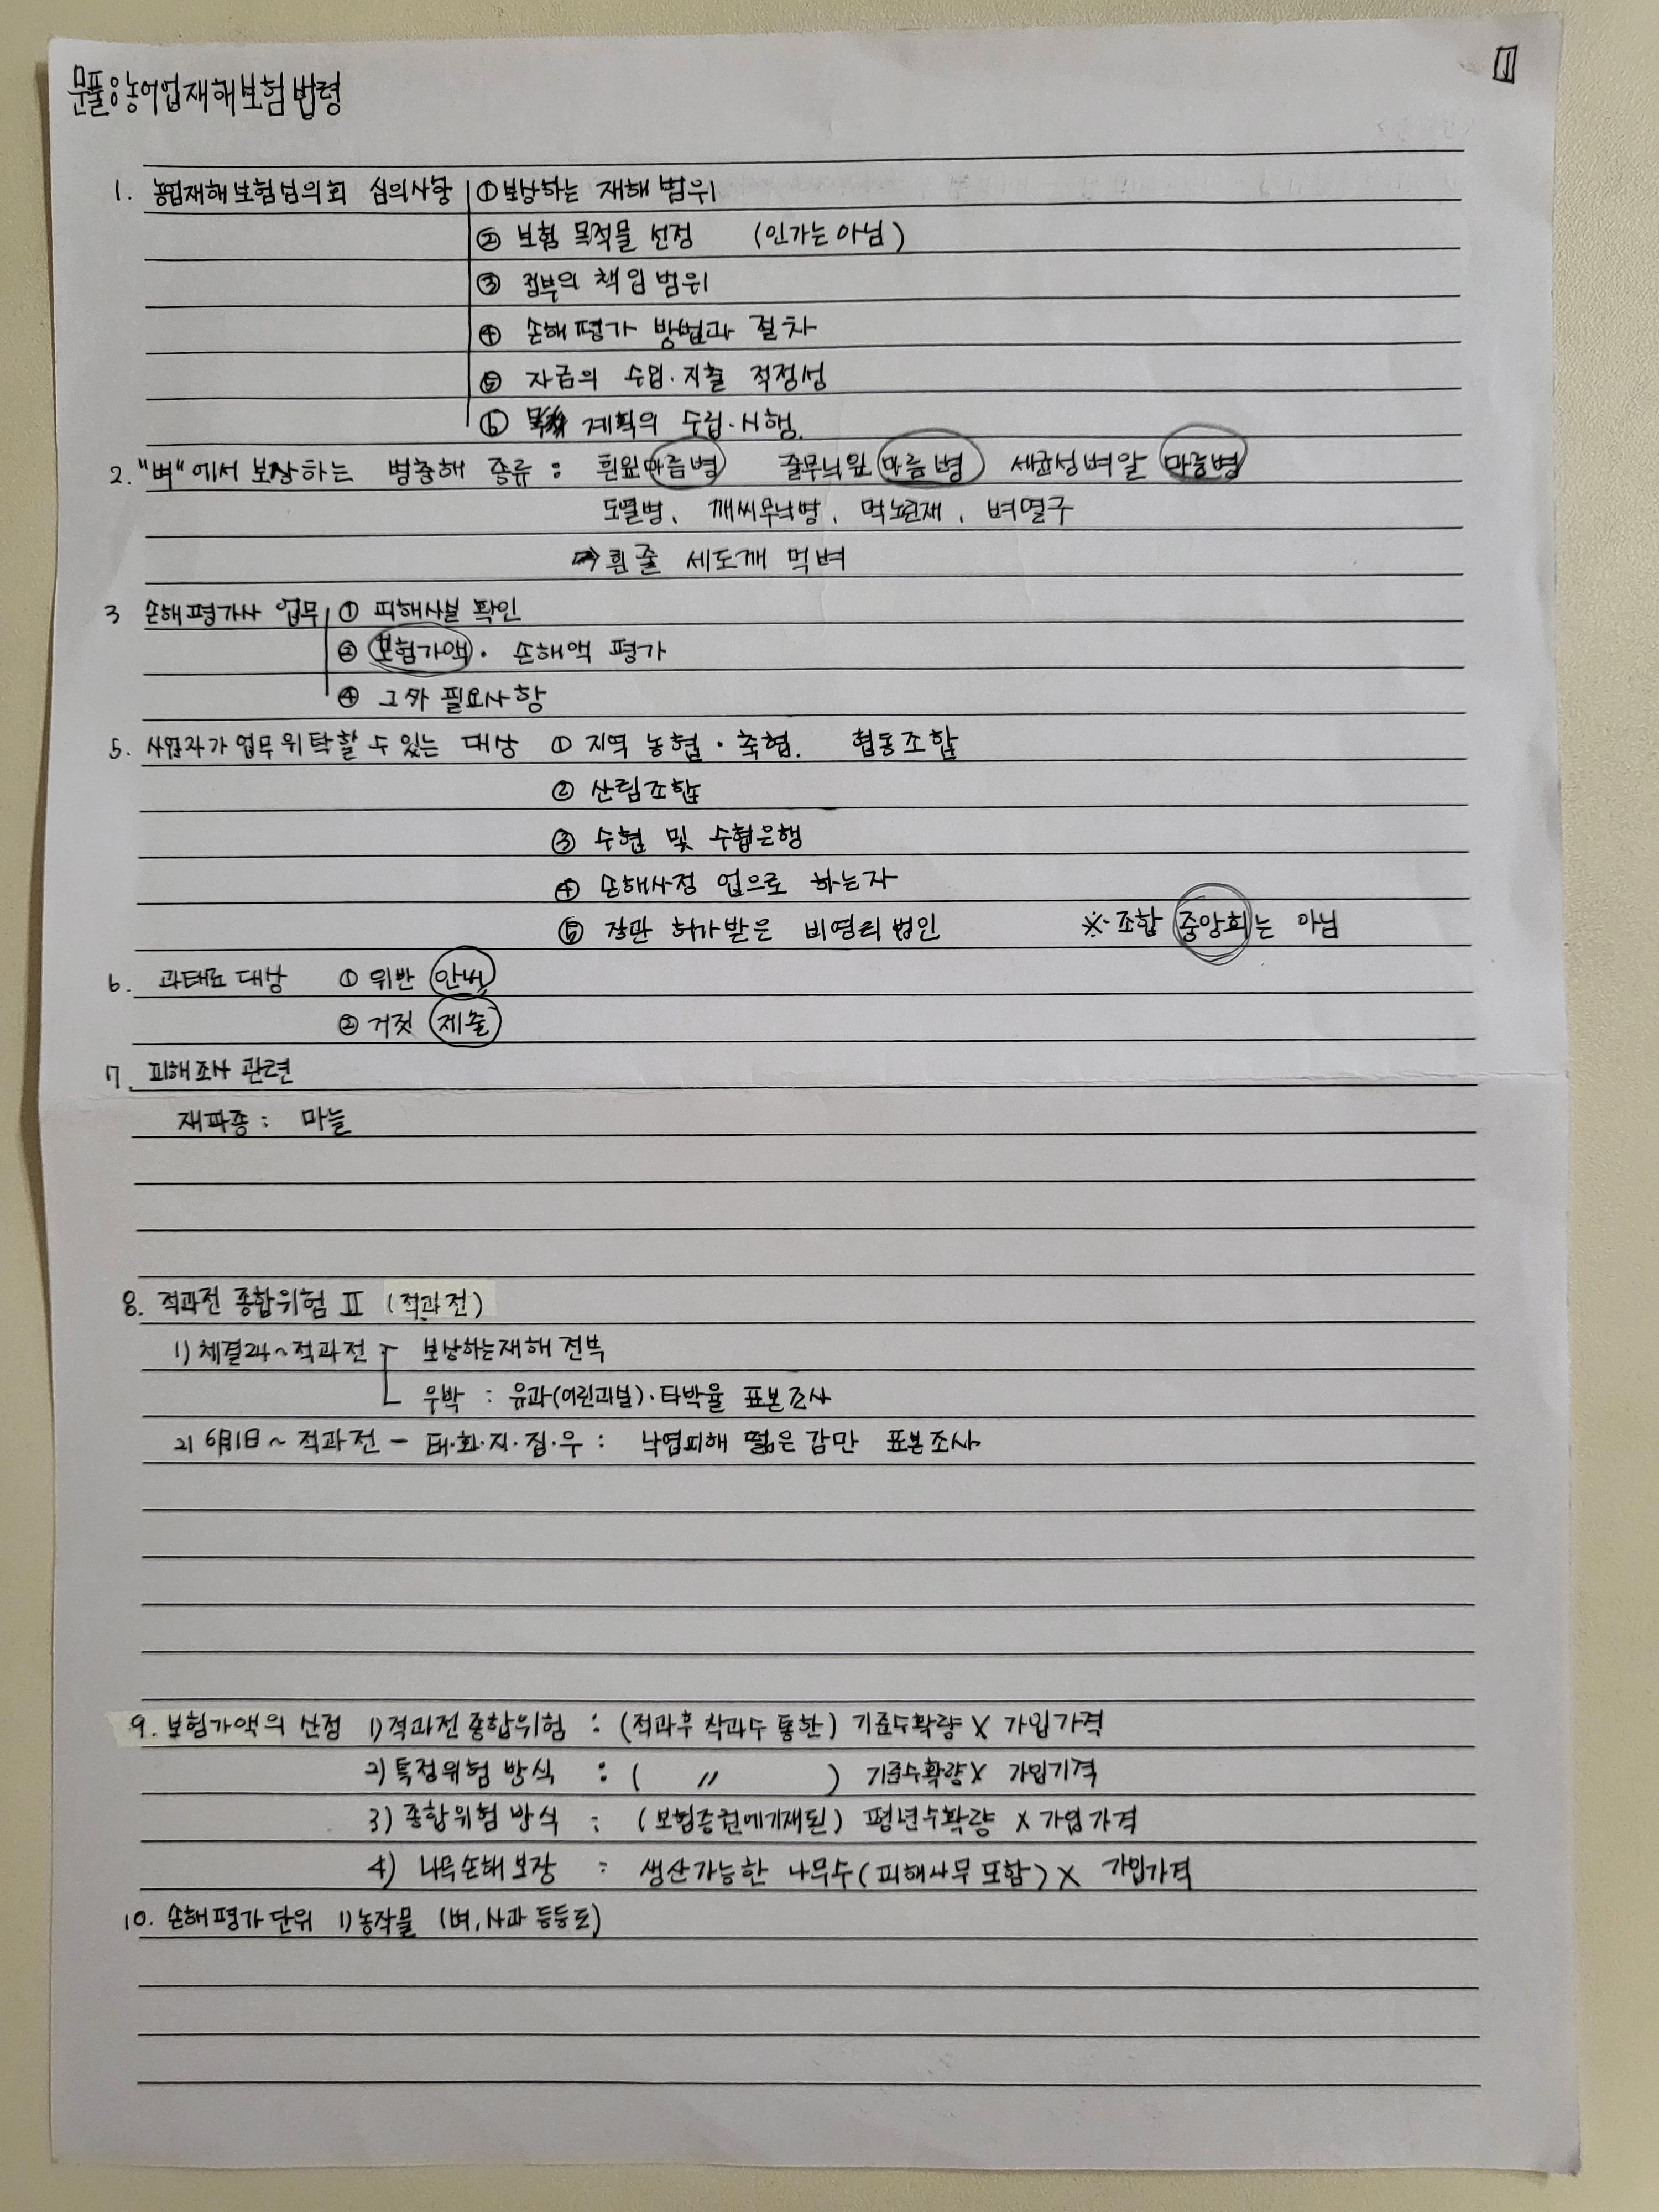 문풀용 농어업재해보험법령
1
1. 농업재해보험심의회 심의사항 ① 보상하는 재해 범위
② 보험 목적물 선정 (인가는 아님)
③ 정부의 책임범위
④ 손해평가 방법과 절차
⑤ 자금의 수입·지출 적정성
⑥ 계획의 수립·시행
2. "벼"에서 보장하는 병충해 종류 : 흰잎마름병 줄무늬잎마름병 세균성벼알마름병
도열병, 깨씨무늬병, 먹노린재, 벼멸구
→ 흰줄 세도깨 먹벼
3 손해평가사 업무 ① 피해사실 확인
② 보험가액·손해액 평가
④ 그 外 필요사항
5. 사업자가 업무위탁할 수 있는 대상 ① 지역 농협·축협. 협동조합
② 산림조합
③ 수협 및 수협은행
④ 손해사정 업으로 하는자
⑤ 장관 허가받은 비영리법인 ※조합 중앙회는 아님
6. 과태료 대상 ① 위반
② 거짓 제출
7. 피해조사 관련
재파종 : 마늘
8. 적과전 종합위험 Ⅱ (적과전)
1) 체결24~적과전 보상하는재해 전부
우박 : 유과(어린과실)·타박율 표본조사
2) 6月1日 ~ 적과전 - 태·화·지·집·우 : 낙엽피해 떫은감만 표본조사
9. 보험가액의 산정 1) 적과전 종합위험 : (적과후 착과수 통한) 기준수확량 X 가입가격
2) 특정위험 방식 : ( 〃 ) 기준수확량 X 가입가격
3) 종합위험 방식 : (보험증권에기재된) 평년수확량 X 가입가격
4) 나무손해보장 : 생산가능한 나무수(피해나무 포함) X 가입가격
10. 손해평가 단위 1) 농작물 (벼, 사과 등등도)